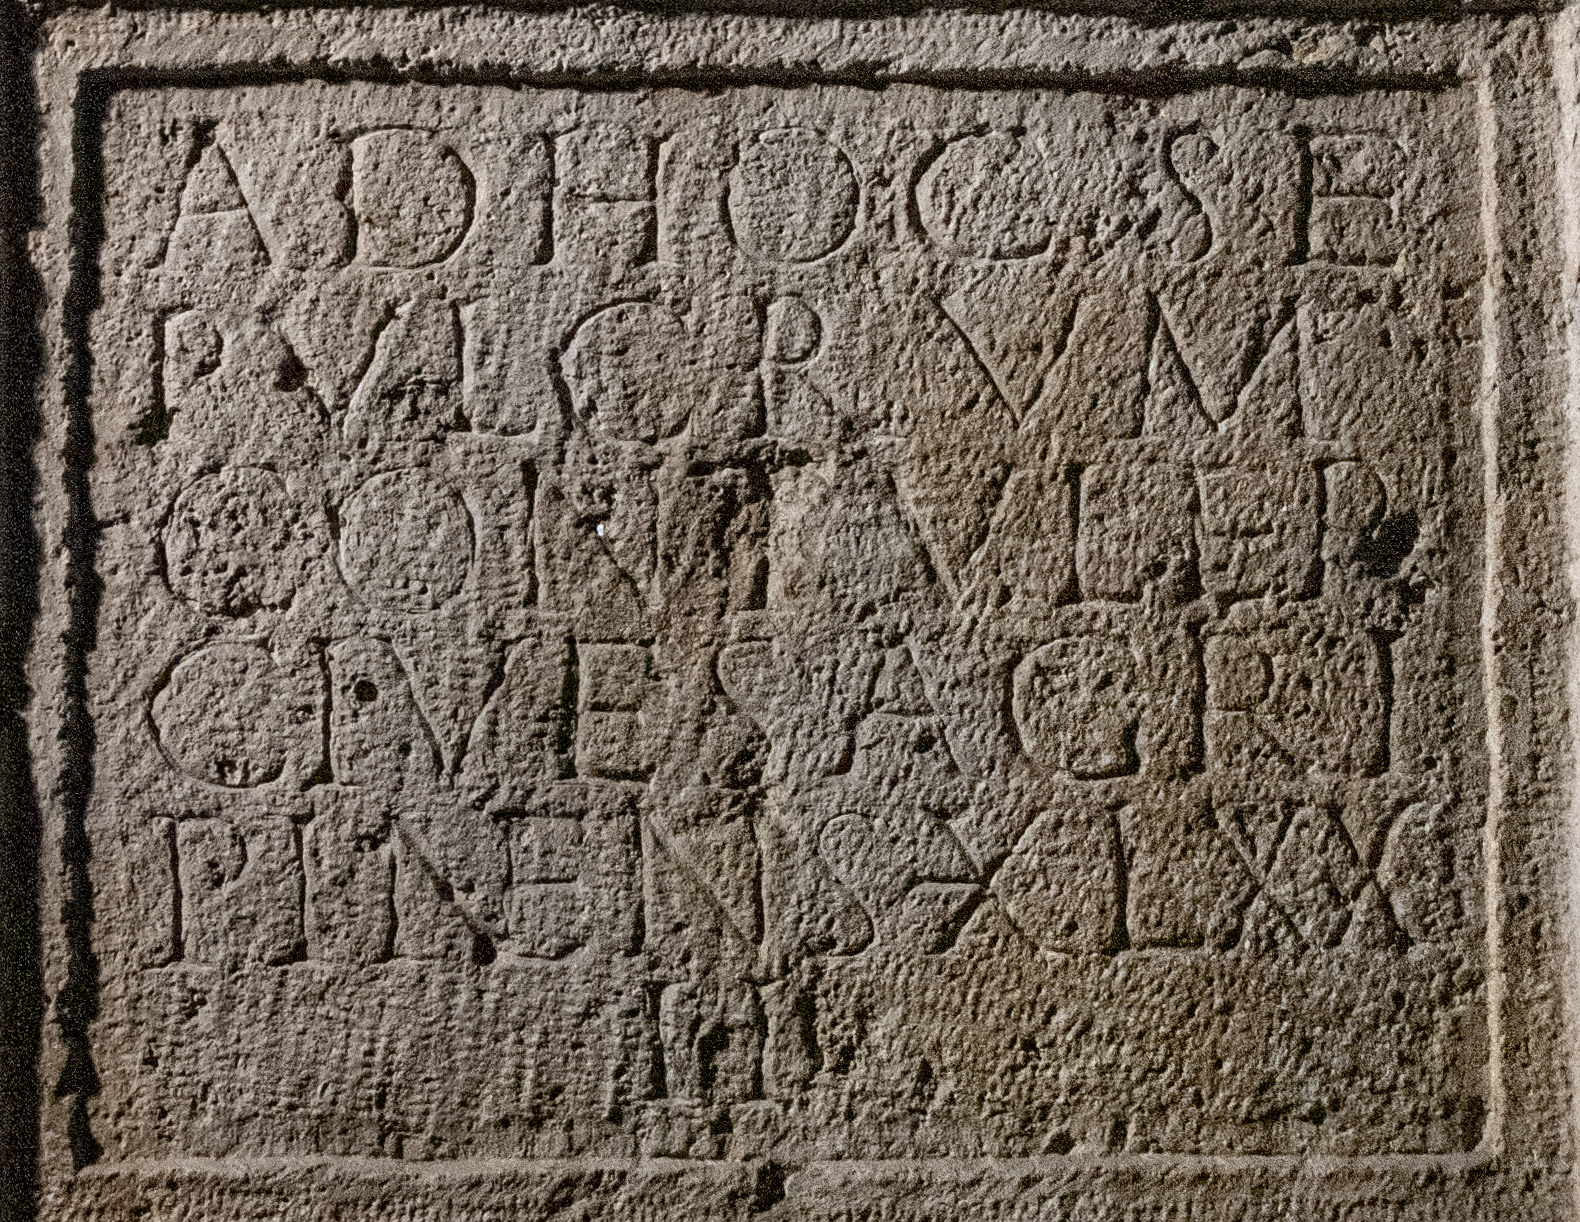 ADHOCSE
PVLCRVM
CONTVLER
CIVESAGRI
PINENS